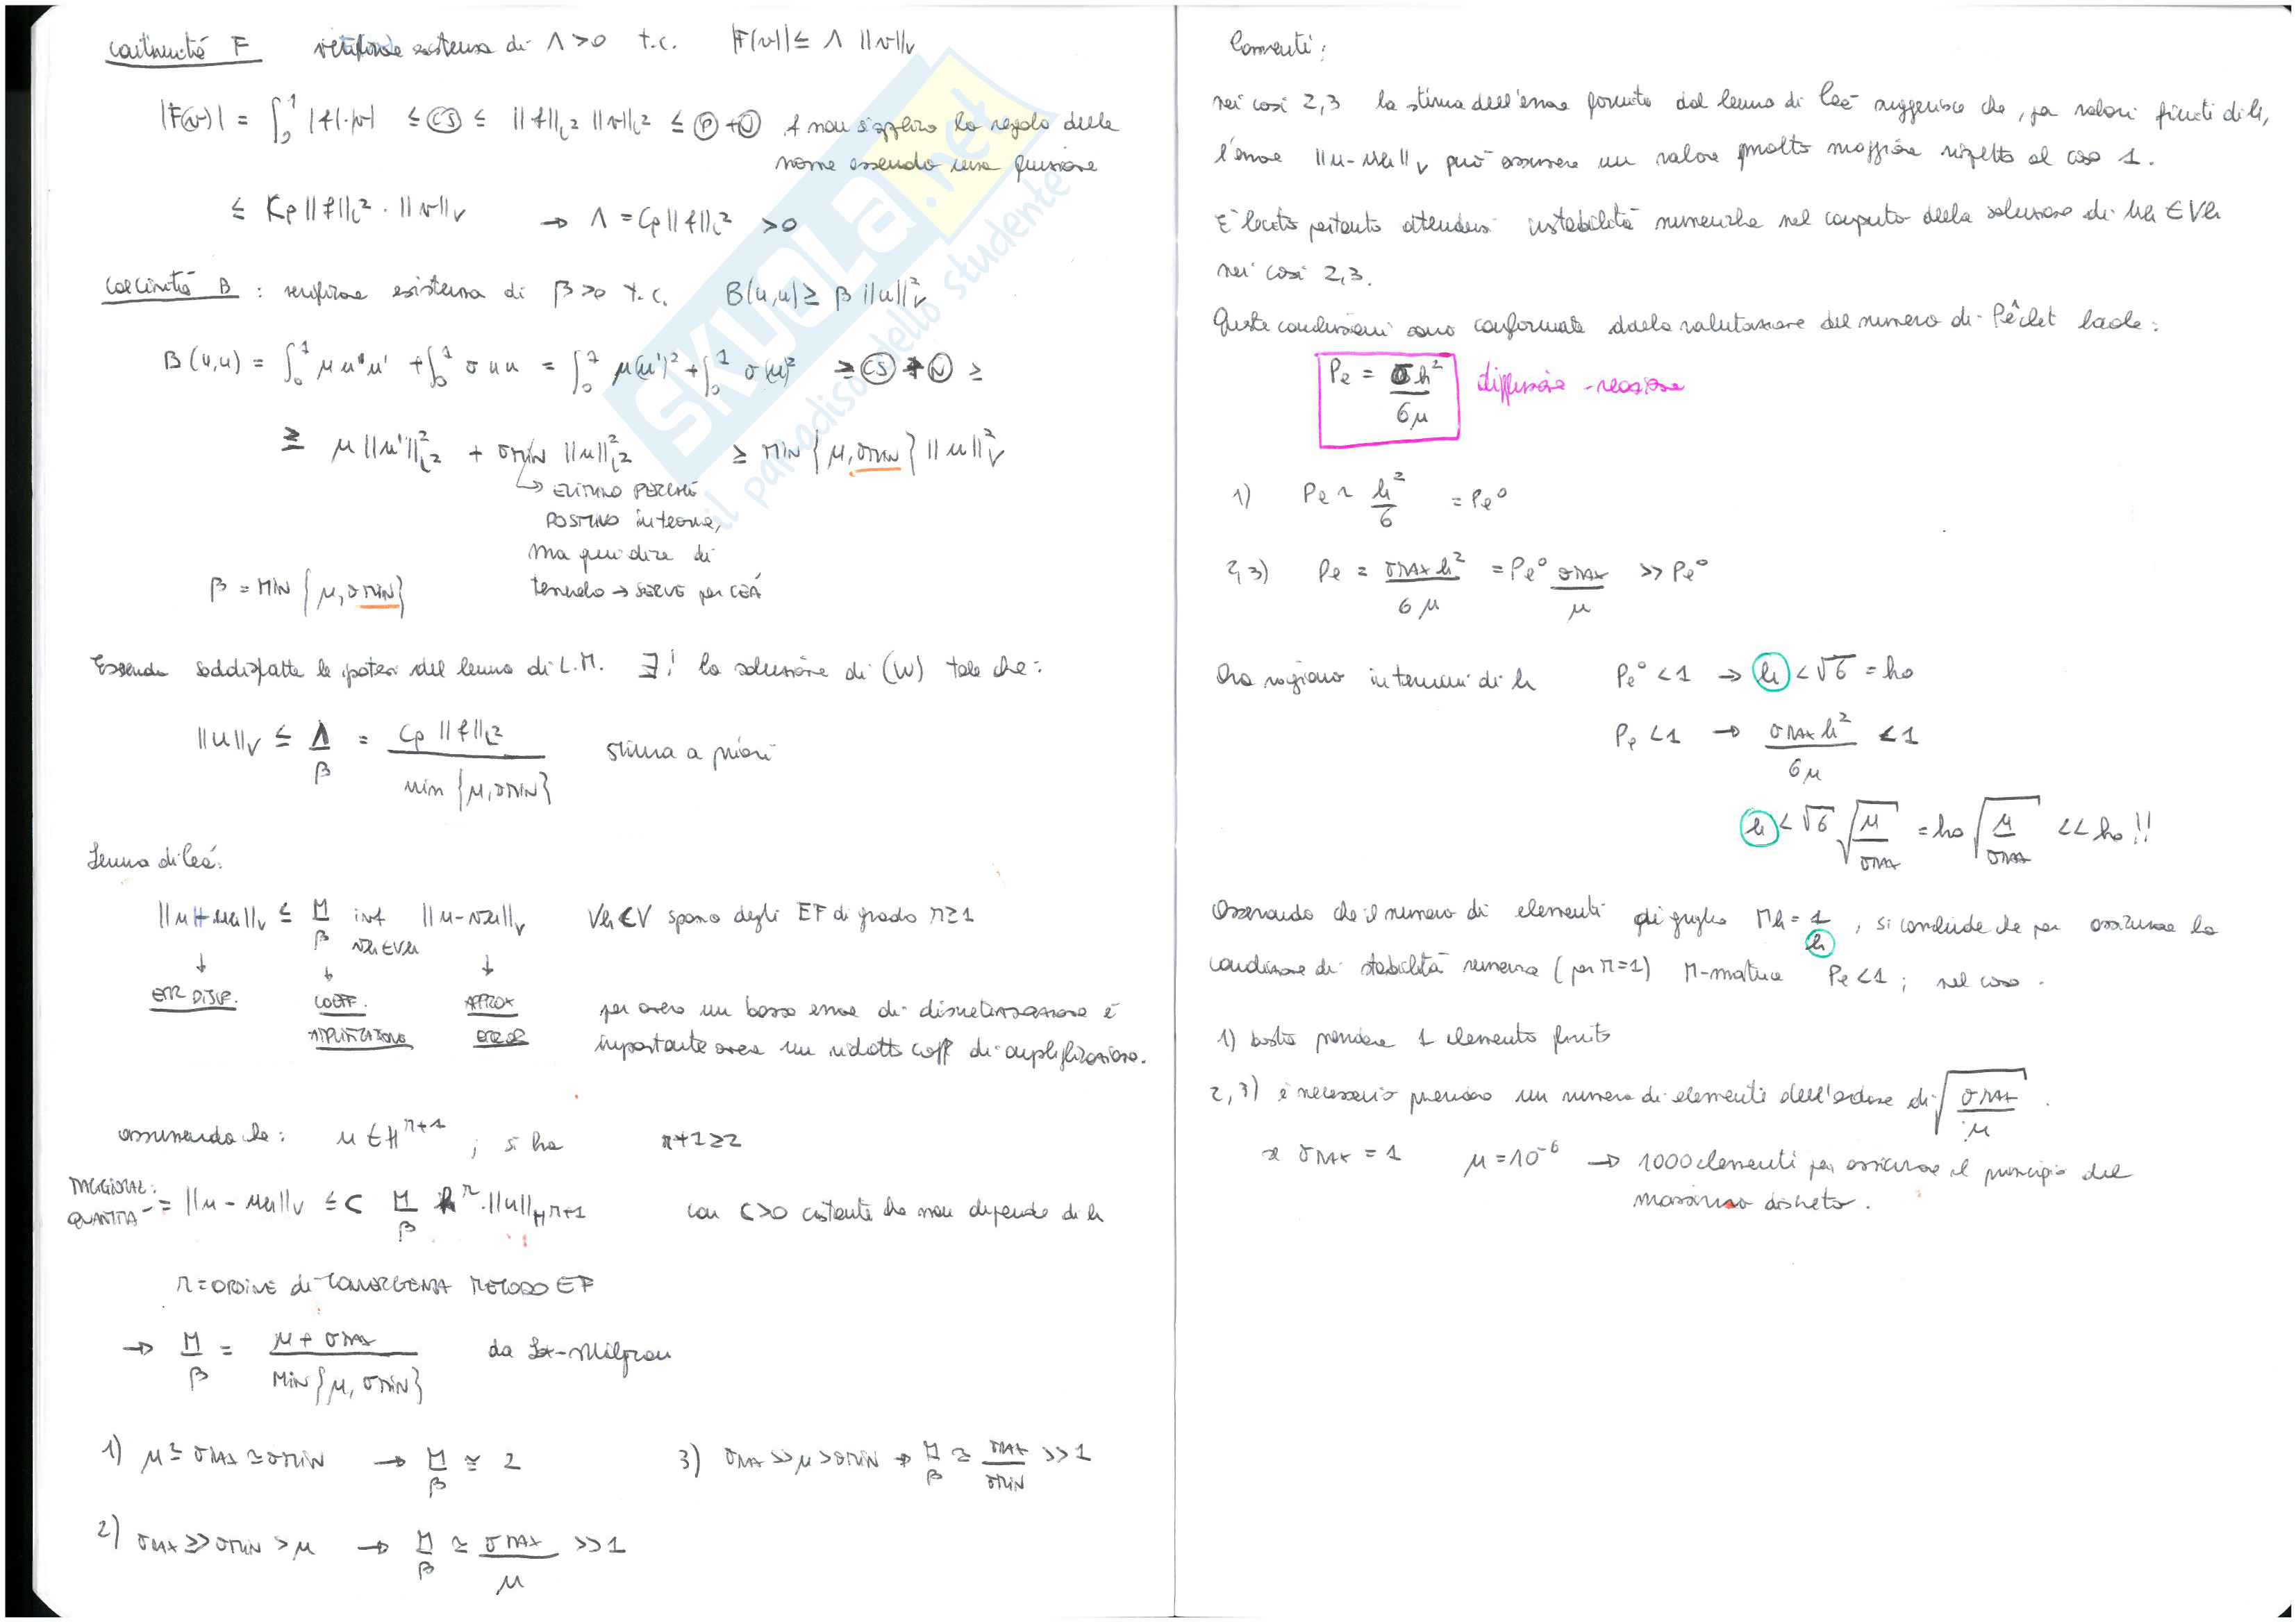 continuità F verificare esistenza di Λ>0 t.c. |F(v)| ≤ Λ ||v||_V
|F(v)| = ∫_0^1 |f|·|v| ≤ (CS) ≤ ||f||_L² ||v||_L² ≤ (P)+(N) f non si applica la regola delle
norme essendo una funzione
≤ Cp ||f||_L² · ||v||_V → Λ = Cp ||f||_L² >0
coercività B : verificare esistenza di β>0 t.c. B(u,u) ≥ β ||u||²_V
B(u,u) = ∫_0^1 μ u' u' + ∫_0^1 σ u u = ∫_0^1 μ(u')² + ∫_0^1 σ(u)² ≥ (CS) + (N) ≥
≥ μ ||u'||²_L² + σMIN ||u||²_L² ≥ MIN {μ, σMIN} ||u||²_V
↳ ELIMINO PERCHÉ
POSITIVO in teoria,
ma qui dice di
tenerlo → SERVE per CEÁ
β = MIN {μ, σMIN}
Essendo soddisfatte le ipotesi del lemma di L.M. ∃! la soluzione di (W) tale che:
||u||_V ≤ Λ/β = Cp ||f||_L² / min {μ, σMIN} stima a priori
Lemma di Ceá:
||u-uh||_V ≤ M/β inf vh∈Vh ||u-vh||_V Vh⊂V spazio degli EF di grado r≥1
↓ ↓ ↓
ERR DISCR. COEFF. APPROX
AMPLIFICAZIONE ERROR
per avere un basso errore di discretizzazione è
importante avere un ridotto coeff di amplificazione.
assumendo che: u ∈ H^{r+1} ; si ha r+1≥2
MAGGIORAZ: QUANTITÀ = ||u-uh||_V ≤ C M/β h^r · ||u||_H^{r+1} con C>0 costante che non dipende di h
r = ORDINE di CONVERGENZA METODO EF
→ M/β = μ + σMAX / MIN{μ, σMIN} da Lax-Milgram
1) μ ≃ σMAX ≃ σMIN → M/β ≃ 2
3) σMAX >> μ > σMIN → M/β ≃ σMAX/σMIN >> 1
2) σMAX >> σMIN > μ → M/β ≃ σMAX/μ >> 1
Commenti:
nei casi 2,3 la stima dell'errore fornita dal lemma di Ceá suggerisce che, per valori finiti di h,
l'errore ||u-uh||_V può assumere un valore molto maggiore rispetto al caso 1.
È lecito pertanto attendersi instabilità numeriche nel computo della soluzione di uh ∈ Vh
nei casi 2,3.
Queste conclusioni sono confermate dalla valutazione del numero di Pêclet locale:
Pe = σh²/6μ diffusione-reazione
1) Pe ~ h²/6 = Pe°
2,3) Pe = σMAX h²/6μ = Pe° σMAX/μ >> Pe°
Ora ragiono in termini di h Pe° <1 → h < √6 = ho
Pe <1 → σMAX h²/6μ <1
h < √6 √μ/σMAX = ho √μ/σMAX << ho!!
Osservando che il numero di elementi di griglia Mh = 1/h , si conclude che per assicurare la
condizione di stabilità numerica (per r=1) M-matrice Pe<1 ; nel caso .
1) basta prendere 1 elemento finito
2,3) è necessario prendere un numero di elementi dell'ordine di √σMAX/μ .
se σMAX = 1 μ=10⁻⁶ → 1000 elementi per assicurare il principio del
massimo discreto.
SKUOLA.net
il paradiso dello studente